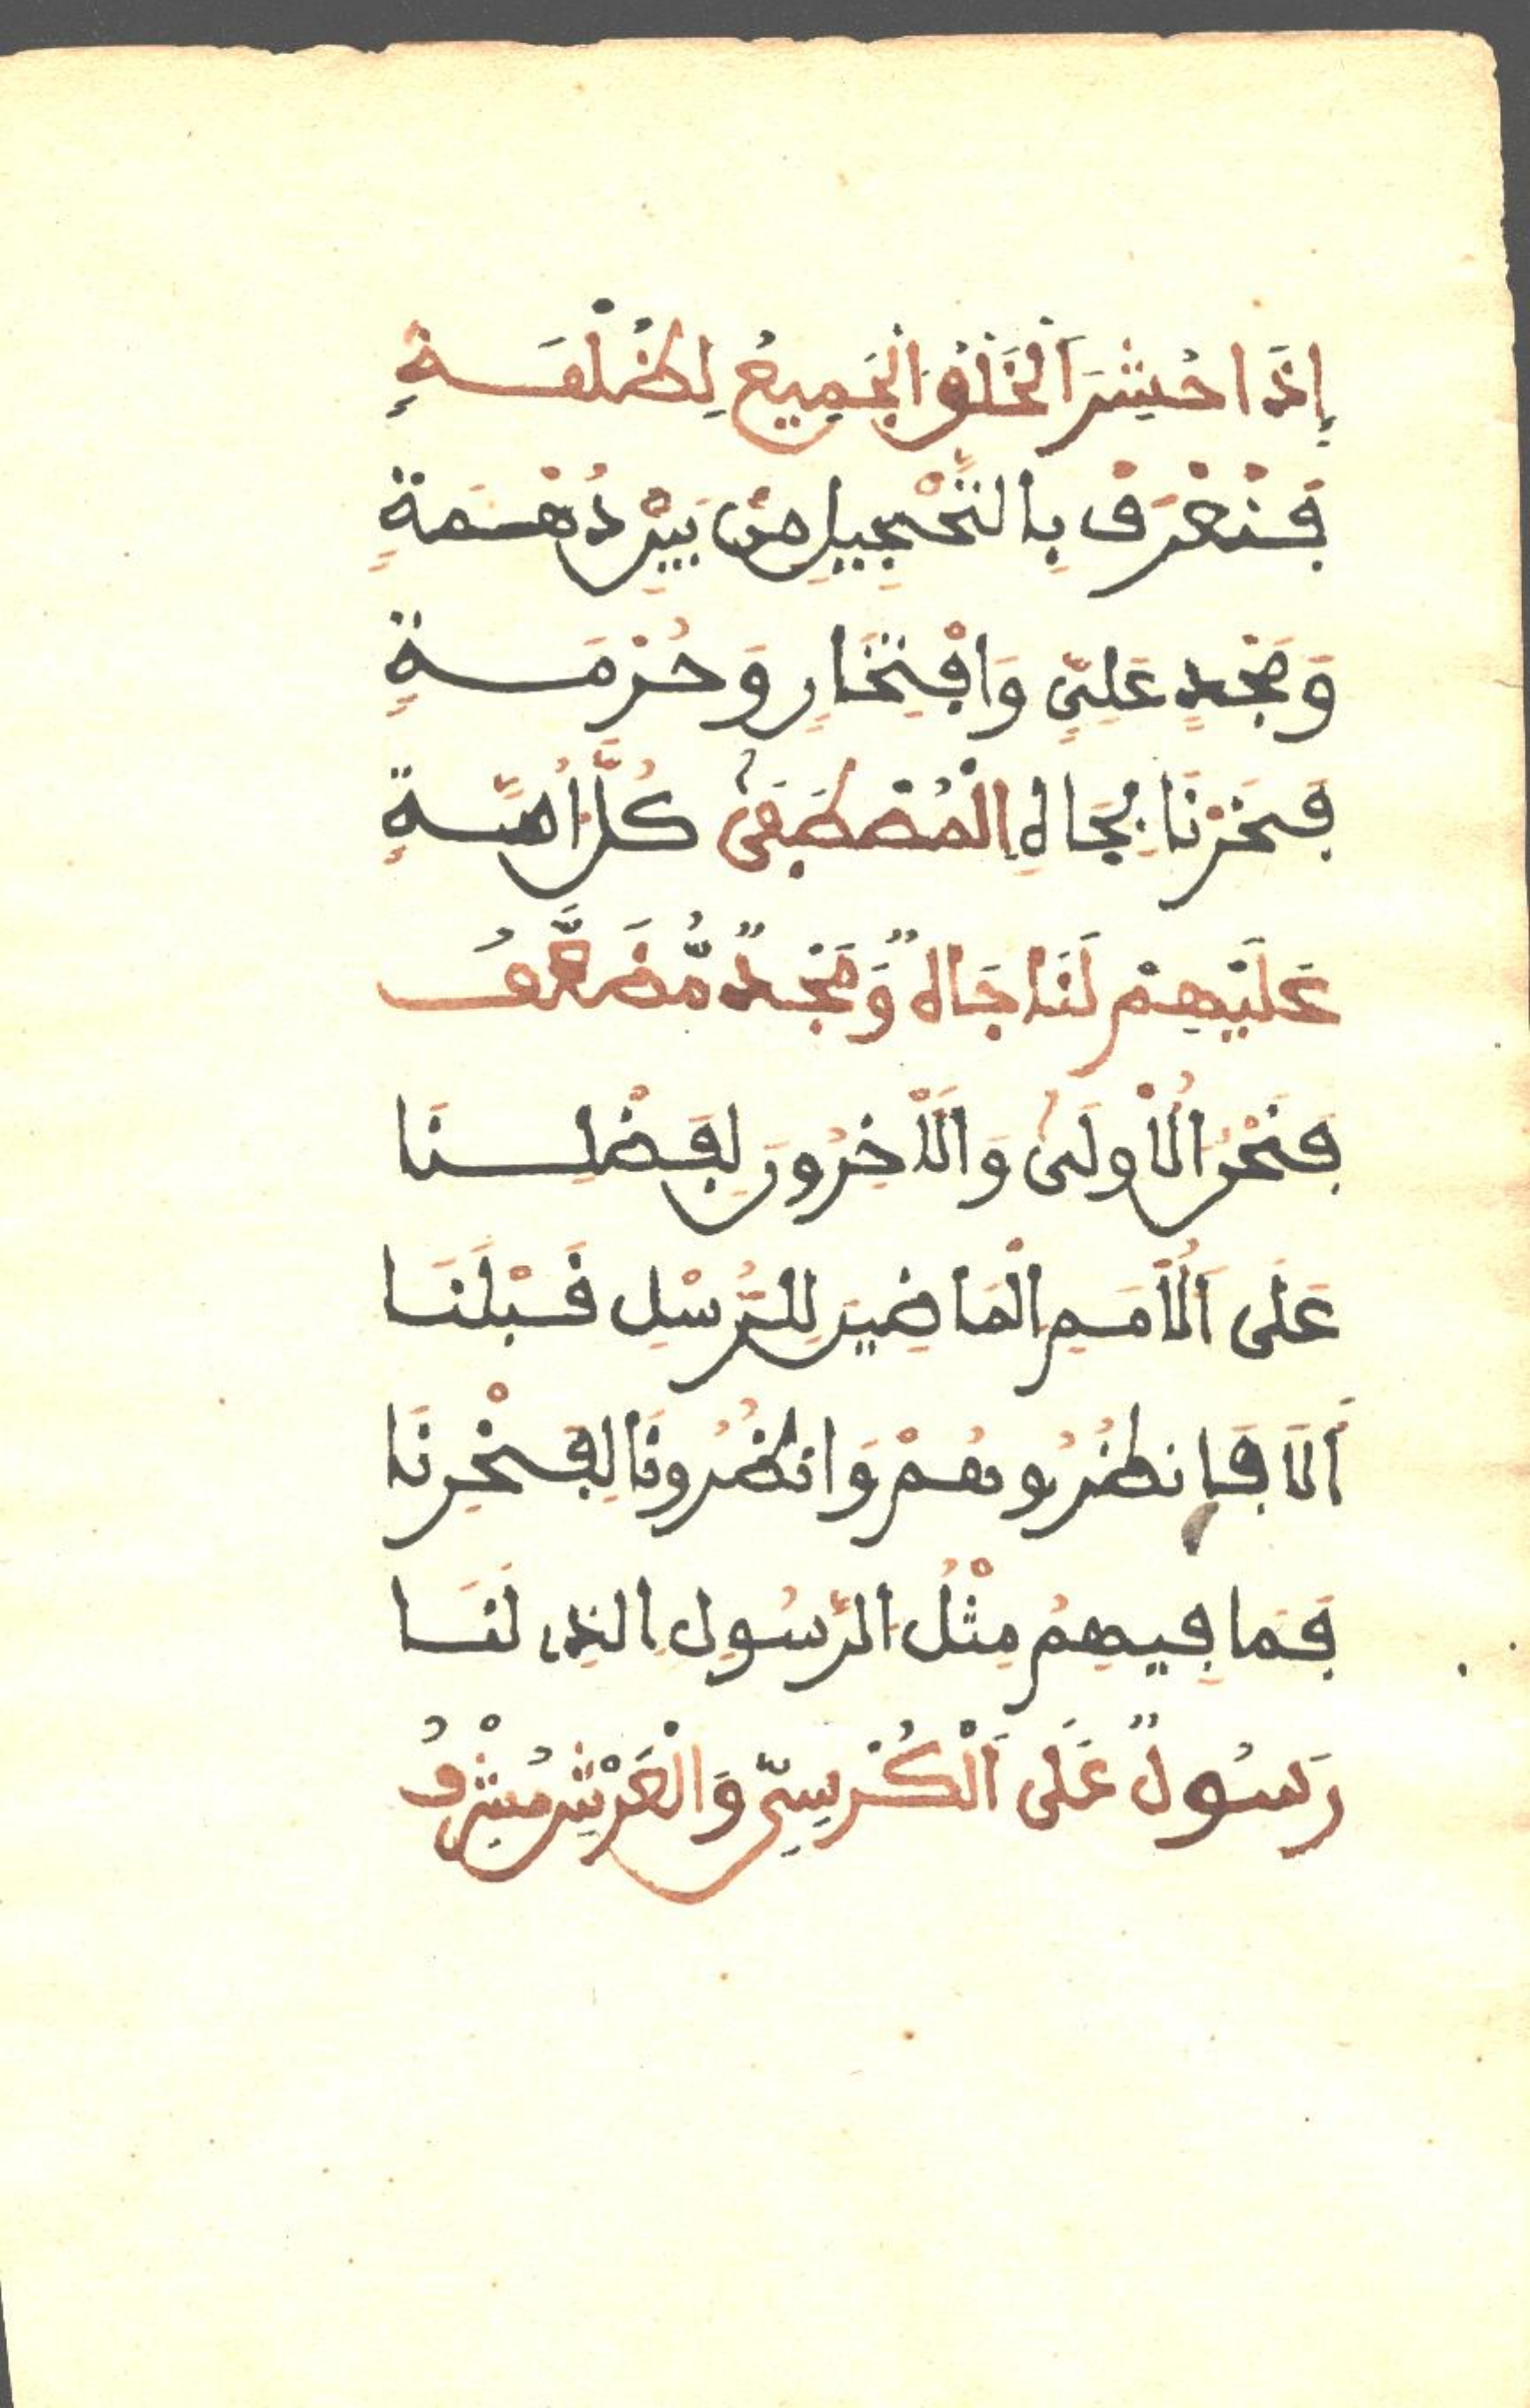 إِذَا حُشِرَ الْخَلْقُ الْجَمِيعُ لِظُلْمَةٍ
فَنُعْرَفُ بِالتَّحْجِيلِ مِنْ بَيْنِ دُهْمَةٍ
وَمَجْدٍ عَلِيٍّ وَافْتِخَارٍ وَحُرْمَةٍ
فَخَرْنَا بِجَاهِ الْمُصْطَفَىٰ كُلَّ أُمَّةٍ
عَلَيْهِمْ لَنَا جَاهٌ وَمَجْدٌ مُّضَعَّفُ
فَنَحْنُ الْأُولَىٰ وَالْآخِرُونَ لِفَضْلِنَا
عَلَى الْأُمَمِ الْمَاضِينَ لِلرُّسْلِ قَبْلَنَا
أَلَا فَانظُرُوهُمْ وَانظُرُونَا لِفَخْرِنَا
فَمَا فِيهِمُ مِثْلُ الرَّسُولِ الَّذِي لَنَا
رَسُولٌ عَلَى الْكُرْسِيِّ وَالْعَرْشِ مُشْرِفُ